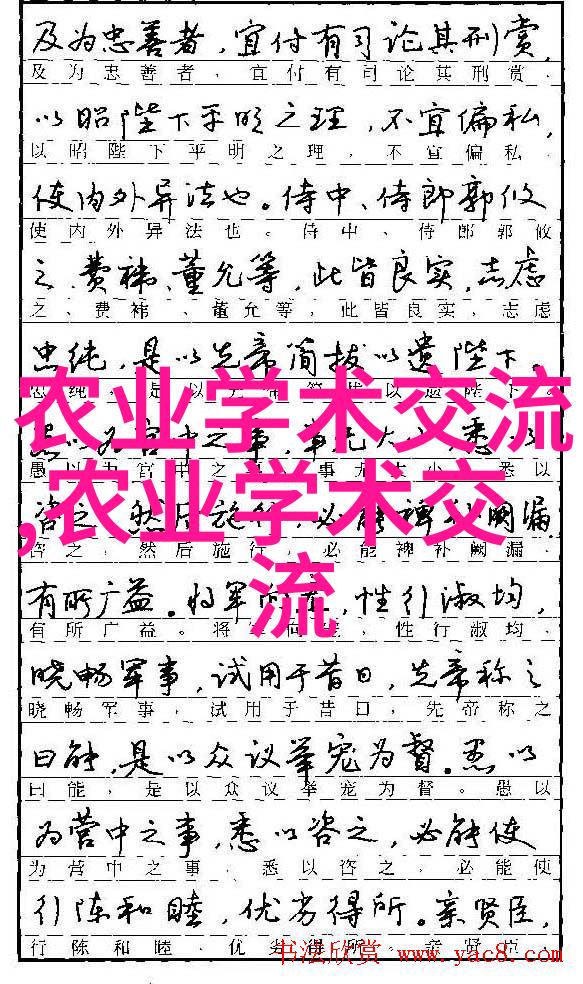 及为忠善者，宜付有司论其刑赏，
及为忠善者，宜付有司论其刑赏，
以昭陛下平明之理，不宜偏私，
以昭陛下平明之理，不宜偏私，
使内外异法也。侍中、侍郎郭攸
使内外异法也。侍中、侍郎郭攸
之、费袆、董允等，此皆良实，志虑
之、费袆、董允等，此皆良实，志虑
忠纯，是以先帝简拔以遗陛下。
忠纯，是以先帝简拔以遗陛下。
农业学术交流
愚以为宫中之事，事无大小，悉以
愚以为宫中之事，事无大小，悉以
,农业学术交
咨之，然后施行，必能裨补阙漏，
咨之，然后施行，必能裨补阙漏，
流
有所广益。将军向宠，性行淑均，
有所广益。将军向宠，性行淑均，
晓畅军事，试用于昔日，先帝称之
晓畅军事，试用于昔日，先帝称之
曰能，是以众议举宠为督。愚以
曰能，是以众议举宠为督。愚以
为营中之事，悉以咨之，必能使
为营中之事，悉以咨之，必能使
行陈和睦，优劣得所。亲贤臣，
行陈和睦，优劣得所。亲贤臣，
书法欣赏 www.yac8.com